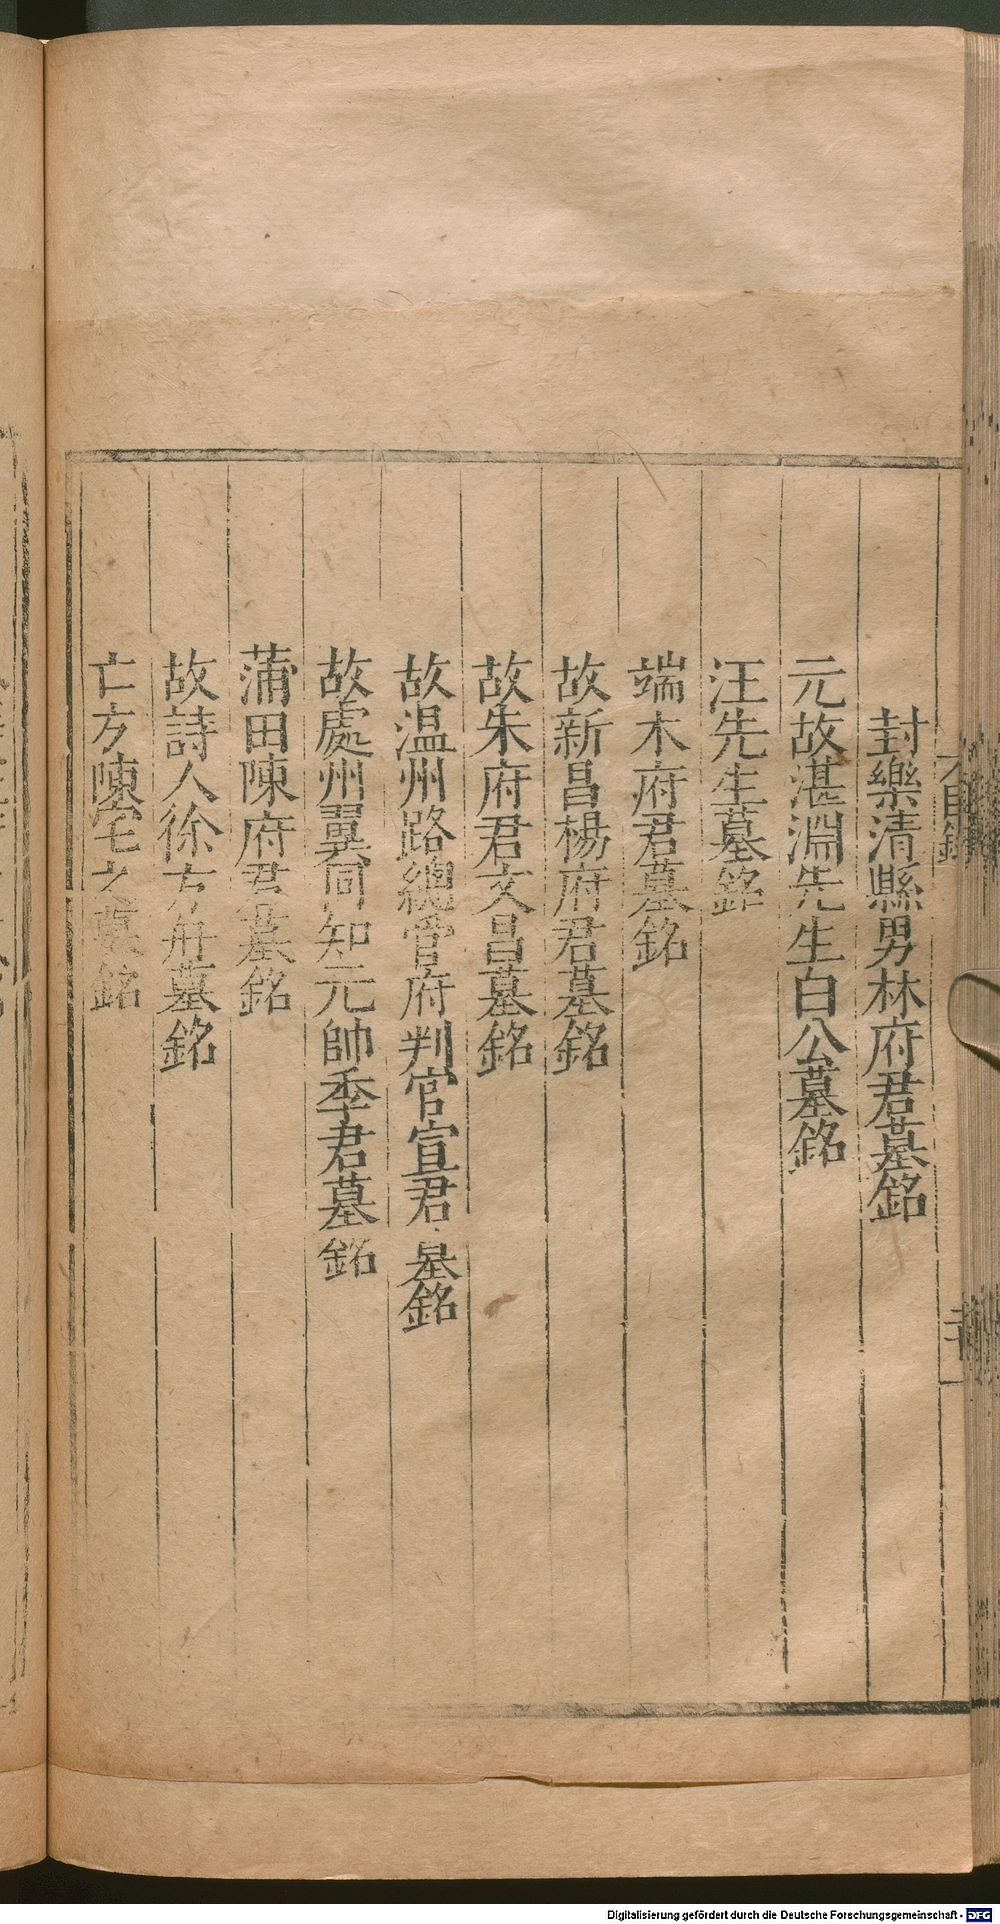 封樂清縣男林府君墓銘
元故湛淵先生白公墓銘
汪先生墓銘
端木府君墓銘
故新昌楊府君墓銘
故朱府君文昌墓銘
故温州路總管府判官宣君墓銘
故處州翼同知元帥季君墓銘
蒲田陳府君墓銘
故詩人徐方舟墓銘
亡友陳宅之墓銘
Digitalisierung gefördert durch die Deutsche Forschungsgemeinschaft - DFG